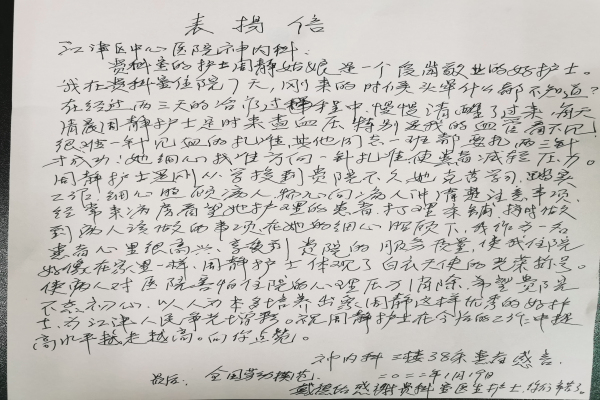 表揚信
江津区中心医院神内科:
贵科室的护士周静姑娘是一个爱岗敬业的好护士。
我在贵科室住院7天,刚来的时候头晕什么都不知道?
在经过两三天的治疗过程中,慢慢清醒了过来,每天
清晨周静护士是时来查血压,特别是我的血管看不见,
很难一针见血的扎准,其他同志一班都要扎两三针
才成功!她细心找准方向一针扎准使患者减轻压力。
周静护士是刚从学校到贵院不久,她克苦学习,踏实
工作,细心照顾病人,耐心向病人讲清楚注意事项,
经常来病房看望她护理的患者,打理来铺,提醒做
到病人该做的事项,在她的细心照顾下,我作为一名
患者心里很高兴,享受到贵院的服务质量,使我住院
好像在家里一样,周静护士体现了白衣天使的光荣称号。
使病人对医院害怕住院的心理压力消除,希望贵院
不忘初心,以人为本多培养出象周静这样优秀的好护
士,为江津人民争光增彩。祝周静护士在今后的工作中技
高水平越走越高。向你点赞。
神内科二楼38床患者感言.
最后: 全国劳动模范. 二〇二二年1月19日
感谢贵科室医生护士,你们辛苦了。